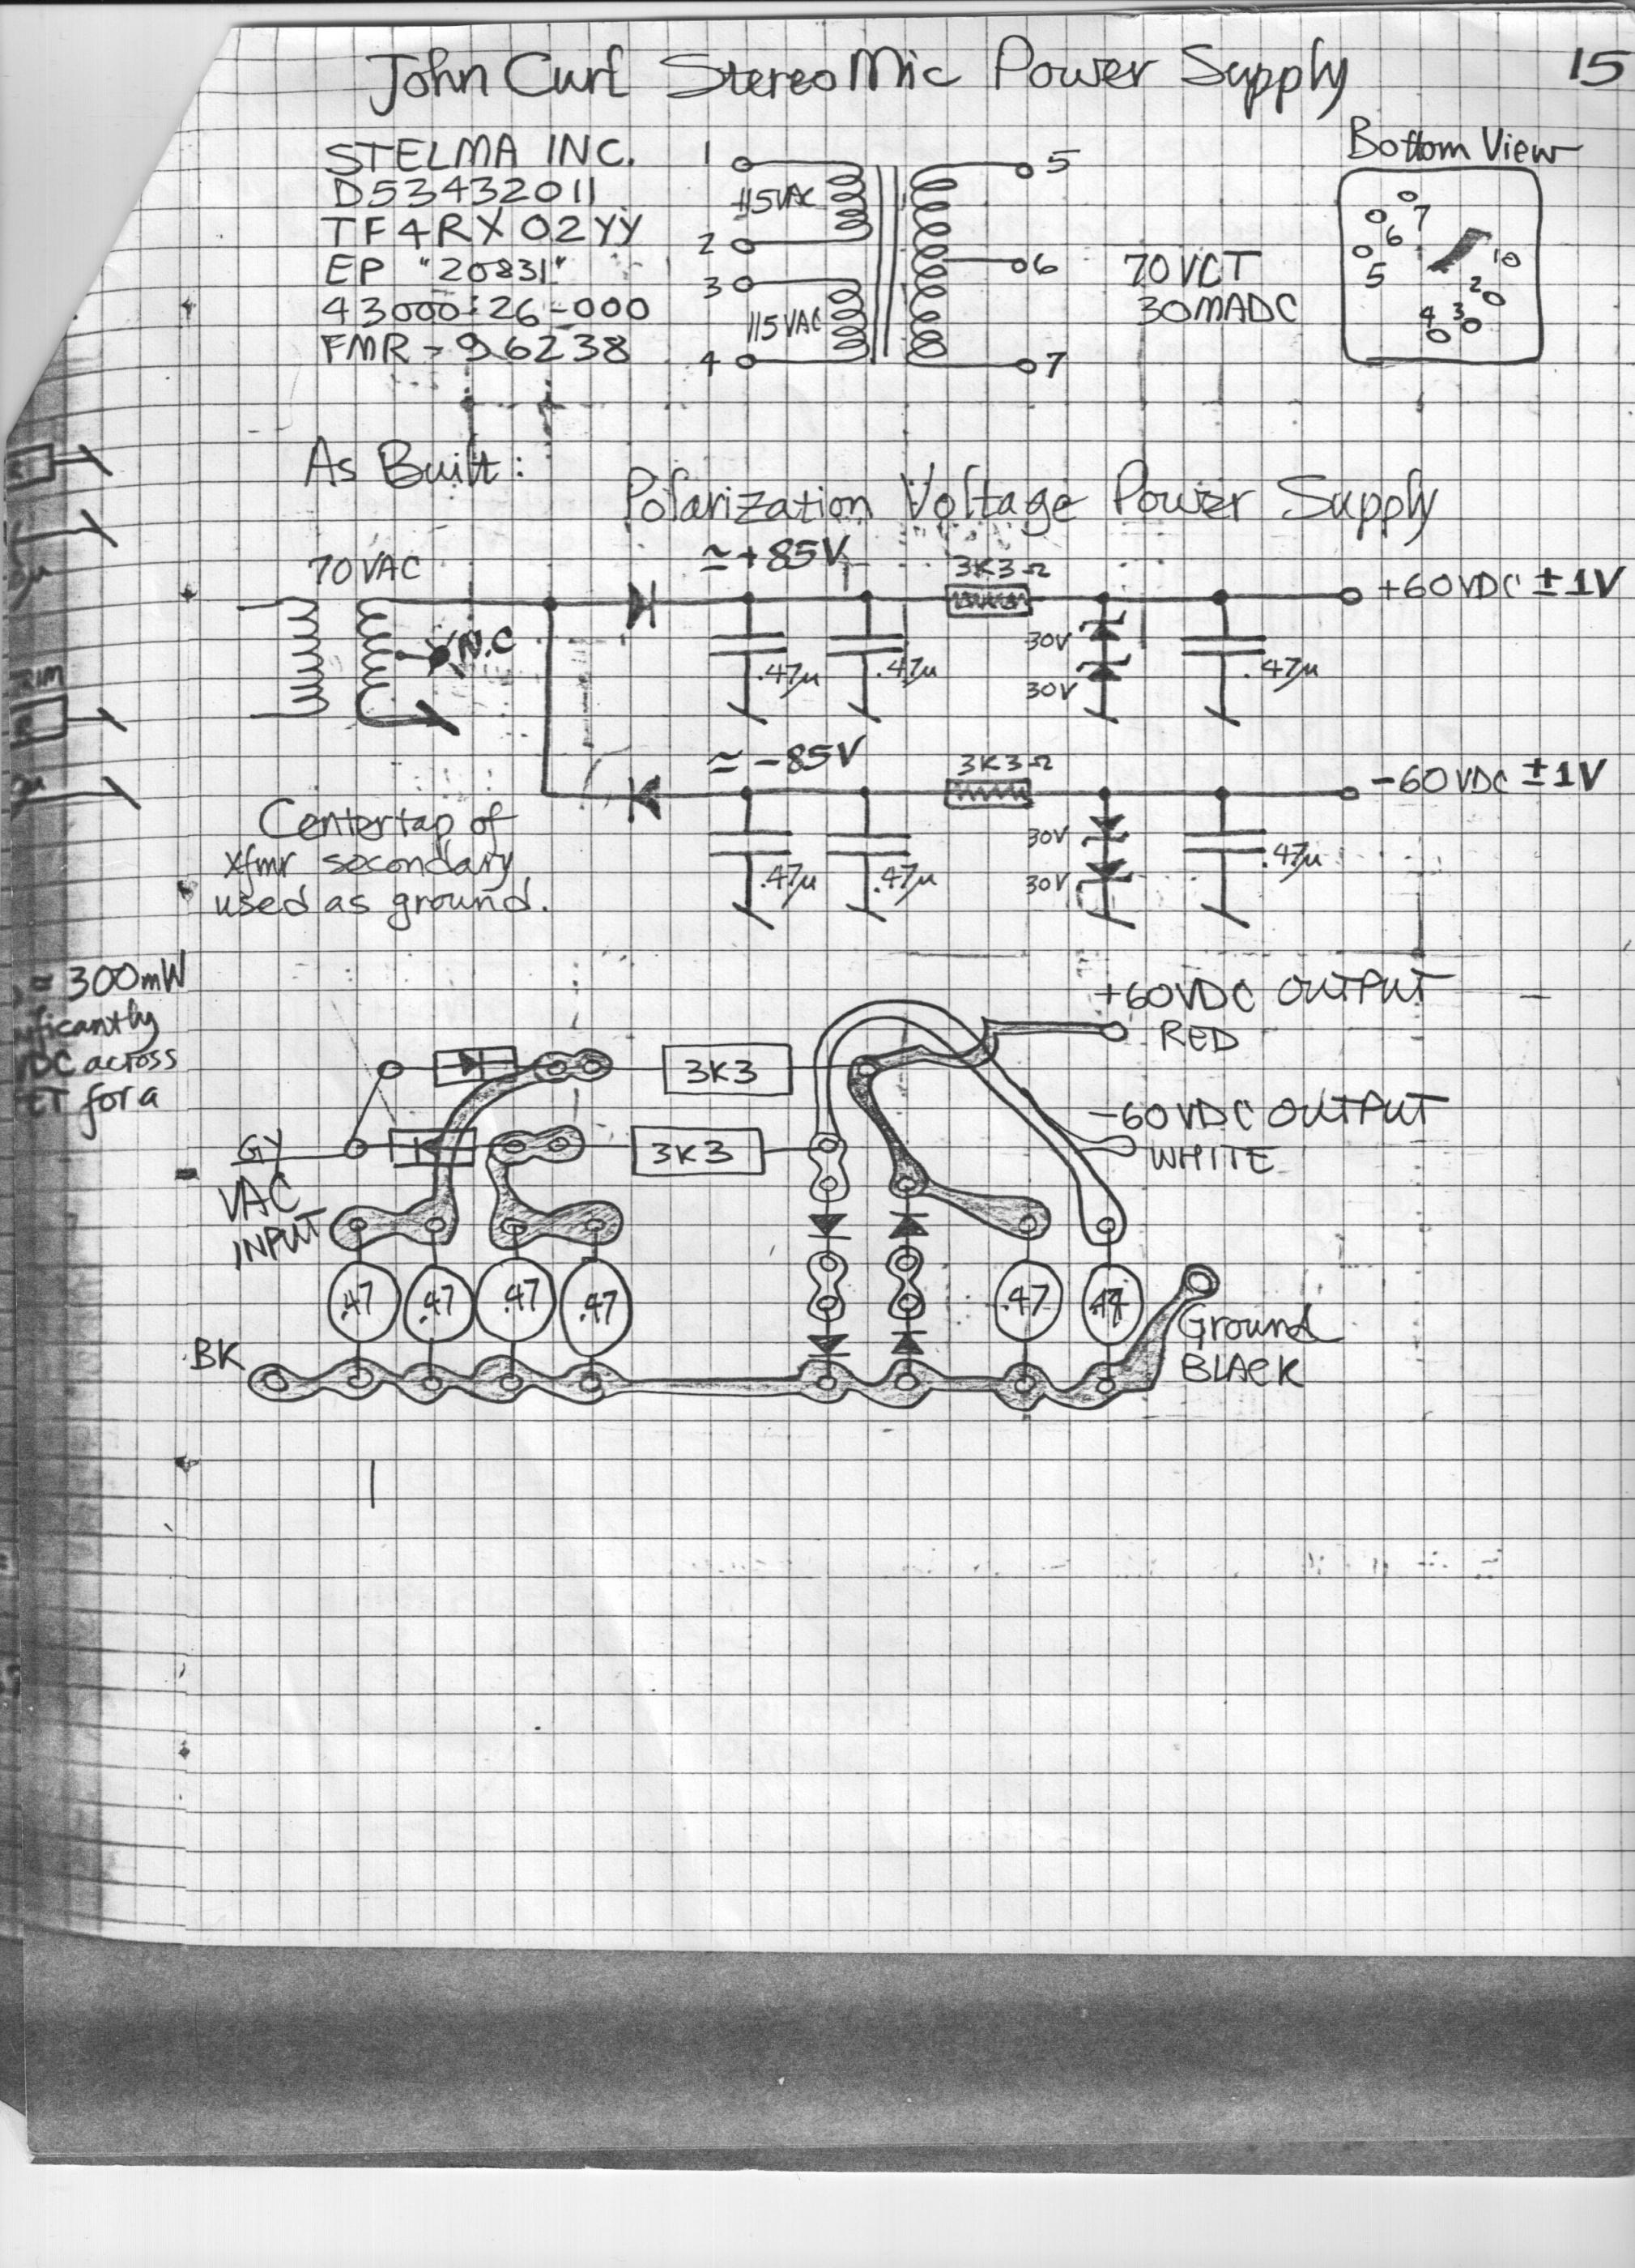 John Curl Stereo Mic Power Supply
15
STELMA INC.
D53432011
TF4RX02YY
EP "20831"
43000-26-000
FMR-96238
1
115VAC
2
3
115VAC
4
5
6
7
70VCT
30MADC
Bottom View
7
6
5
10
2
3
4
As Built:
Polarization Voltage Power Supply
70VAC
N.C
≃+85V
3K3Ω
+60VDC ±1V
.47µ
.47µ
30V
30V
.47µ
≃-85V
3K3Ω
-60VDC ±1V
.47µ
.47µ
30V
30V
.47µ
Centertap of
xfmr secondary
used as ground.
= 300mW
DC across
for a
+60VDC OUTPUT
RED
3K3
-60VDC OUTPUT
WHITE
3K3
GY
VAC
INPUT
.47
.47
.47
.47
.47
.47
BK
Ground
BLACK